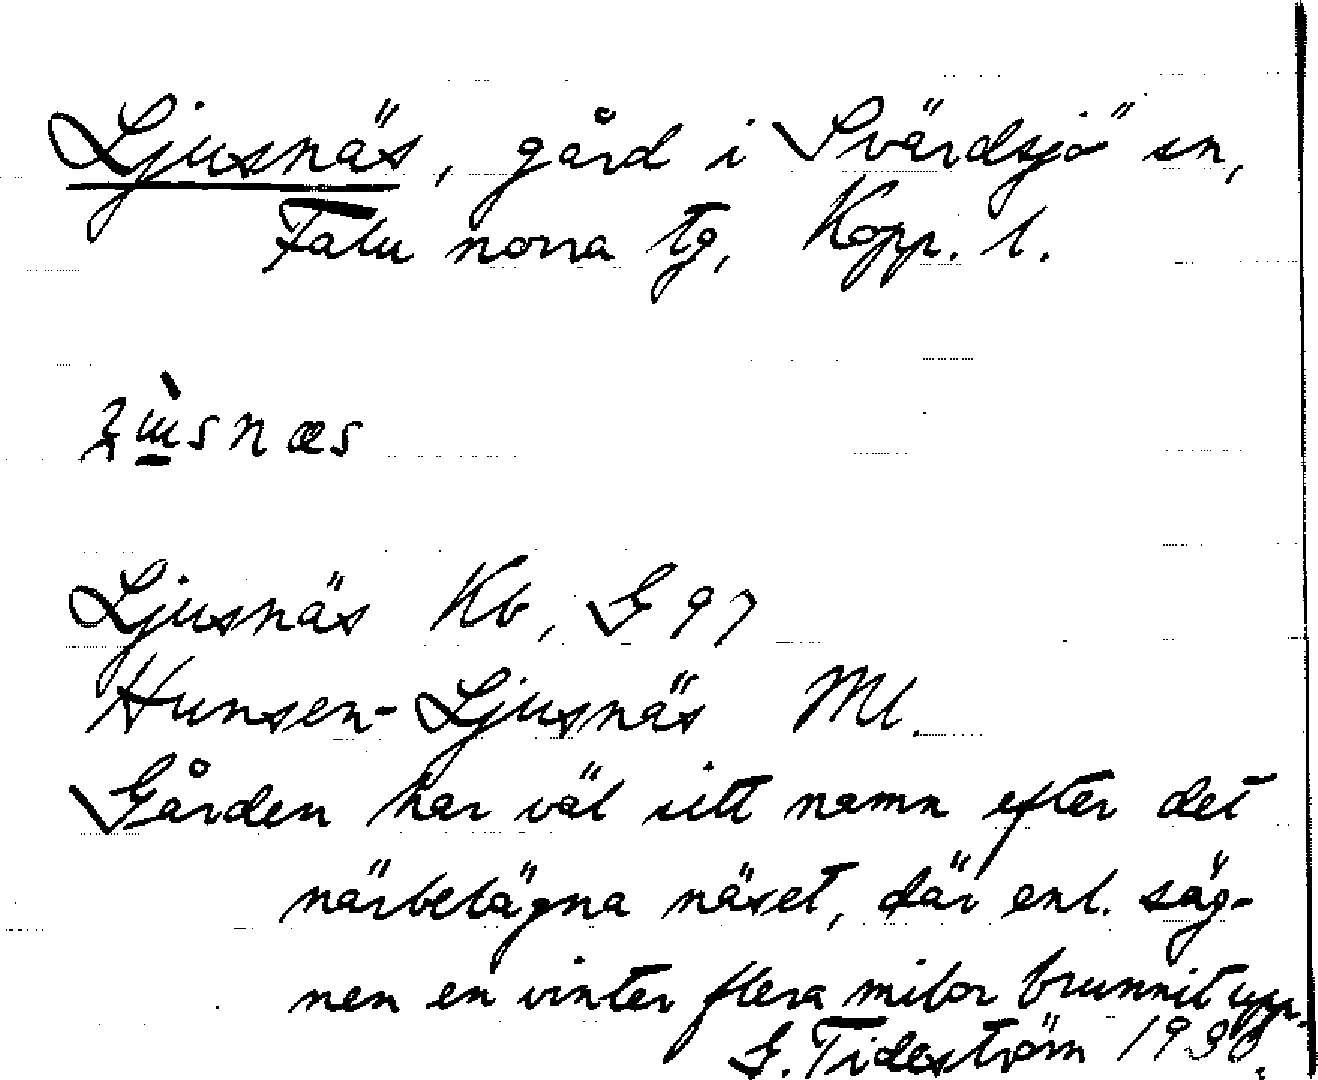 Ljusnäs, gård i Svärdsjö sn,
Falu norra tg, Kopp. l.
Ljusnäs Kb, G 97
Hunsen-Ljusnäs Ml.
Gården har väl sitt namn efter det
närbelägna näset, där enl. säg-
nen en vinter flera milor brunnit upp.
G. Tideström